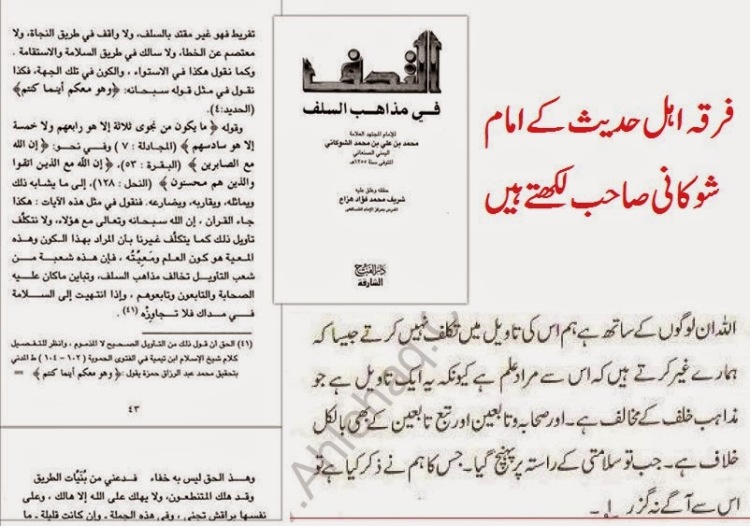 تفريط فهو غير مقتد بالسلف، ولا واقف في طريق النجاة، ولا
معتصم عن الخطأ، ولا سالك في طريق السلامة والاستقامة .
وكما نقول هكذا في الاستواء ، والكون في تلك الجهة، فكذا
نقول في مثل قوله سبحانه: ﴿وهو معكم أينما كنتم﴾
(الحديد:٤).
وقوله ﴿ما يكون من نجوى ثلاثة إلا هو رابعهم ولا خمسة
إلا هو سادسهم ﴾ (المجادلة : ٧) وفي نحو: ﴿إن الله
مع الصابرين ﴾ (البقرة : ٥٣)، ﴿إن الله مع الذين اتقوا
والذين هم محسنون ﴾ (النحل : ١٢٨)، إلى ما يشابه ذلك
ويماثله، ويقاربه، ويضارعه. فنقول في مثل هذه الآيات : هكذا
جاء القرآن ، إن الله سبحانه وتعالى مع هؤلاء، ولا نتكلف
تأويل ذلك كما يتكلف غيرنا بأن المراد بهذا الكون وهذه
المعية هو كون العلم ومعيته ، فإن هذه شعبة من
شعب التأويل تخالف مذاهب السلف، وتباين ماكان عليه
الصحابة والتابعون وتابعوهم ، وإذا انتهيت إلى السلامة
في مداك فلا تجاوزه (٤١) .
(٤١) الحق أن قول ذلك من التأويل الصحيح لا المذموم ، وانظر للتفصيل
كلام شيخ الإسلام ابن تيمية في الفتوى الحموية (١٠٢ - ١٠٤) ط المدني
بتحقيق محمد عبد الرزاق حمزة يقول: ﴿وهو معكم أينما كنتم﴾ =
٤٣
وهذ الحق ليس به خفاء فدعني من بُنيّات الطريق
وقد هلك المتنطعون، ولا يهلك على الله إلا هالك ، وعلى
نفسها براقش تجني ، وفي هذه الجملة ـ وإن كانت قليلة ـ ما
التحف
في مذاهب السلف
للإمام المجتهد العلامة
محمد بن علي بن محمد الشوكاني
اليمني الصنعاني
المتوفى سنة ١٢٥٥هـ
حققه وعلق عليه
شريف محمد فؤاد هزاع
دار الفتح
الشارقة
فرقہ اہل حدیث کے امام
شوکانی صاحب لکھتے ہیں
اللہ ان لوگوں کے ساتھ ہے ہم اس کی تاویل میں تکلف نہیں کرتے جیسا کہ
ہمارے غیر کرتے ہیں کہ اس سے مراد علم ہے کیونکہ یہ ایک تاویل ہے جو
مذاہب خلف کے مخالف ہے۔اور صحابہ و تابعین اور تبع تابعین کے بھی بالکل
خلاف ہے۔ جب تو سلامتی کے راستہ پر پہنچ گیا۔ جس کا ہم نے ذکر کیا ہے تو
اس سے آگے نہ گزر۔